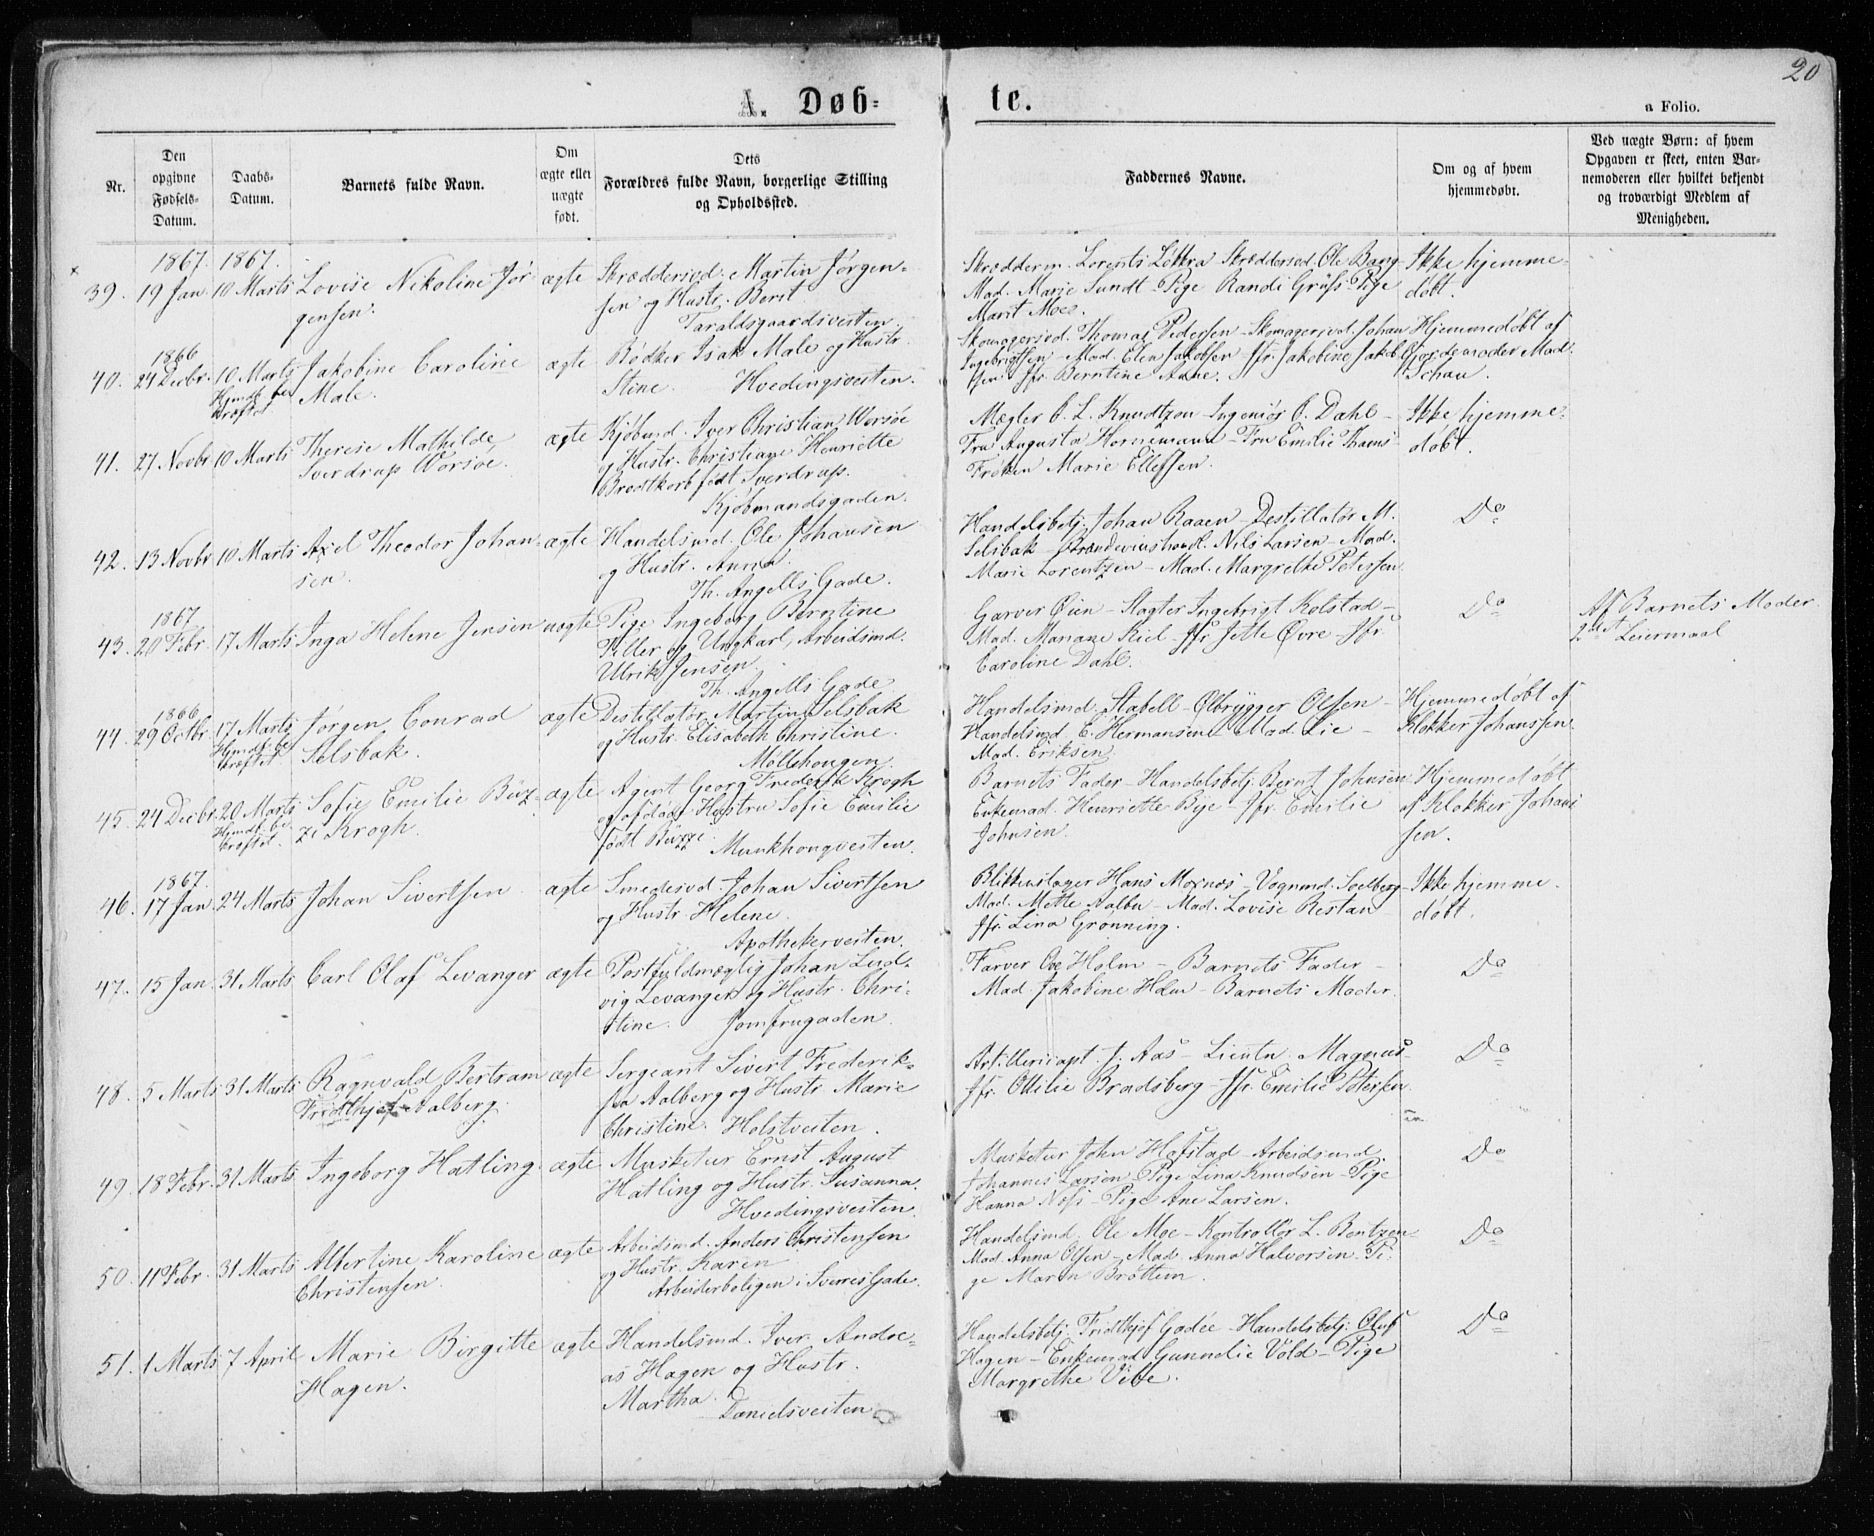 20
A. Døb=
te.
a Folio.
Nr.
Den
opgivne
Fødsels=
Datum.
Daabs=
Datum.
Barnets fulde Navn.
Om
ægte eller
uægte
født.
Dets
Forældres fulde Navn, borgerlige Stilling
og Opholdssted.
Faddernes Navne.
Om og af hvem
hjemmedøbt.
Ved uægte Børn: af hvem
Opgaven er skeet, enten Bar=
nemoderen eller hvilket bekjendt
og troværdigt Medlem af
Menigheden.
1867. 1867.
39. 19 Jan. 10 Marts Lovise Nikoline Jør
gensen.
ægte
Skræddersvd. Martin Jørgen=
sen og Hustr. Berit
Taraldsgaardsveiten.
Skrædderm. Lorents Løkkra Skræddersvd. Ole Bang
Mad. Marie Sundt - Pige Randi Grüss - Pige
Marit Moes.
Ikke hjemme=
døbt.
1866
40. 24 Decbr. 10 Marts
Hjmdb. be
kræftet
Jakobine Caroline
Male.
ægte
Bødker Isak Male og Hustr.
Stine. Hvedingsveiten.
Skomagersvd. Thomas Pedersen - Skomagersvd. Johan
Ingebrigtsen - Mad. Elen Jakobsen Jfr. Jakobine Jakob
sen Jfr. Berntine Aune.
Hjemmedøbt af
Gjordemoder Mad.
Schau.
41. 27 Novbr 10 Marts Therese Mathilde
Sverdrup Worsøe.
ægte
Kjøbmd. Iver Christian Worsøe
og Hustr. Christiane Henriette
Brodtkorb født Sverdrup.
Kjøbmandsgaden.
Mægler C. L. Knudtzon - Ingeniør C. Dahl -
Fru Augusta Hornemann - Fru Emilie Thams -
Frøken Marie Ellefsen.
Ikke hjemme=
døbt.
42. 13 Novbr 10 Marts Axel Theodor Johan
sen.
ægte
Handelsmd. Ole Johansen
og Hustr. Anna.
Th. Angells Gade.
Handelsbetj. Johan Raaen - Destillatør M.
Selsbak - Brændevinshandl. Nils Larsen - Mad.
Marie Lorentzen - Mad. Margrethe Petersen.
Do
1867
43. 20 Febr. 17 Marts Inga Helene Jensen
uægte
Pige Ingeborg Berntine
Piller og Ungkarl, Arbeidsmd.
Ulrik Jensen.
Th. Angells Gade
Garver Øien - Slagter Ingebrigt Kolstad -
Mad. Mariane Kiel - Jfr. Jette Øvre - Jfr.
Caroline Dahl.
Do
Af Barnets Moder
2det Leiermaal
1866
44. 29 Octbr. 17 Marts
Hjmdb. be
kræftet
Jørgen Conrad
Selsbak.
ægte
Destillatør Martin Selsbak
og Hustr. Elisabeth Christine.
Møllehougen.
Handelsmd. Stabell - Ølbrygger Olsen -
Handelsmd E. Hermansen - Mad. Lie -
Mad. Eriksen
Hjemmedøbt af
Klokker Johanssen.
45. 24 Decbr. 20 Marts
Hjmdb. be
kræftet.
Sofie Emilie Büz=
zi Krogh.
ægte
Agent Georg Frederik Krogh
og afdøde Hustru Sofie Emilie
født Büzzi. Munkhougveiten.
Barnets Fader - Handelsbetj. Bernt Johnsen
Enkemad. Henriette Bye - Jfr. Emilie
Johnsen.
Hjemmedøbt
af Klokker Johans
sen.
1867.
46. 17 Jan. 24 Marts Johan Sivertsen
ægte
Smedesvd. Johan Sivertsen
og Hustr. Helene.
Apothekerveiten.
Blikkenslager Hans Moxnæs - Vognmd. Solberg
Mad. Mette Aalbu - Mad. Lovise Restan
Jfr. Lina Grønning.
Ikke hjemme
døbt.
47. 15 Jan. 31 Marts Carl Olaf Levanger
ægte
Postfuldmægtig Johan Lud=
vig Levanger og Hustr. Chri=
stine. Jomfrugaden.
Farver Ove Holm - Barnets Fader -
Mad. Jakobine Holm - Barnets Moder.
Do
48. 5 Marts 31 Marts Ragnvald Bertram
Fridthjof Aalberg.
ægte
Sergeant Sivert Frederik=
sen Aalberg og Hustr. Marie
Christine. Holstveiten.
Artillericapt. J. Aas - Lieutn. Magnus -
Jfr. Ottilie Bradsberg - Jfr. Emilie Petersen
Do
49. 18 Febr. 31 Marts Ingeborg Hatling.
ægte
Musketur Ernst August
Hatling og Hustr. Susanna.
Hvedingsveiten.
Musketur John Hofstad - Arbeidsmd.
Johannes Larsen - Pige Lina Knudsen - Pige
Hanna Næss - Pige Ane Larsen.
Do
50. 11 Febr. 31 Marts Albertine Karoline
Christensen.
ægte
Arbeidsmd. Anders Christensen
og Hustr. Karen
Arbeiderboligen i Sverres Gade.
Handelsmd. Ole Moe - Kontrollør L. Bentzen
Mad. Anna Olsen - Mad. Anna Halvorsen - Pi=
ge Maren Brøttem.
Do
51. 1 Marts 7 April Marie Birgitte
Hagen.
ægte
Handelsmd. Iver Andre=
as Hagen og Hustr.
Martha. Danielsveiten
Handelsbetj. Fridthjof Gødée - Handelsbetj. Oluf
Hagen - Enkemad. Gunnelie Vold - Pige
Margrethe Vibe.
Do